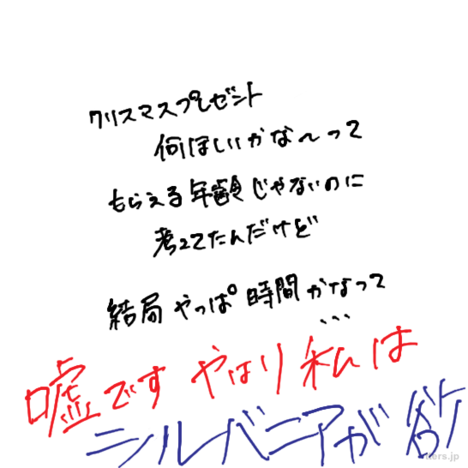 クリスマスプレゼント
何ほしいかな〜って
もらえる年齢じゃないのに
考えてたんだけど
結局 やっぱ 時間 かなって
...
嘘です やはり 私は
シルバニアが 欲